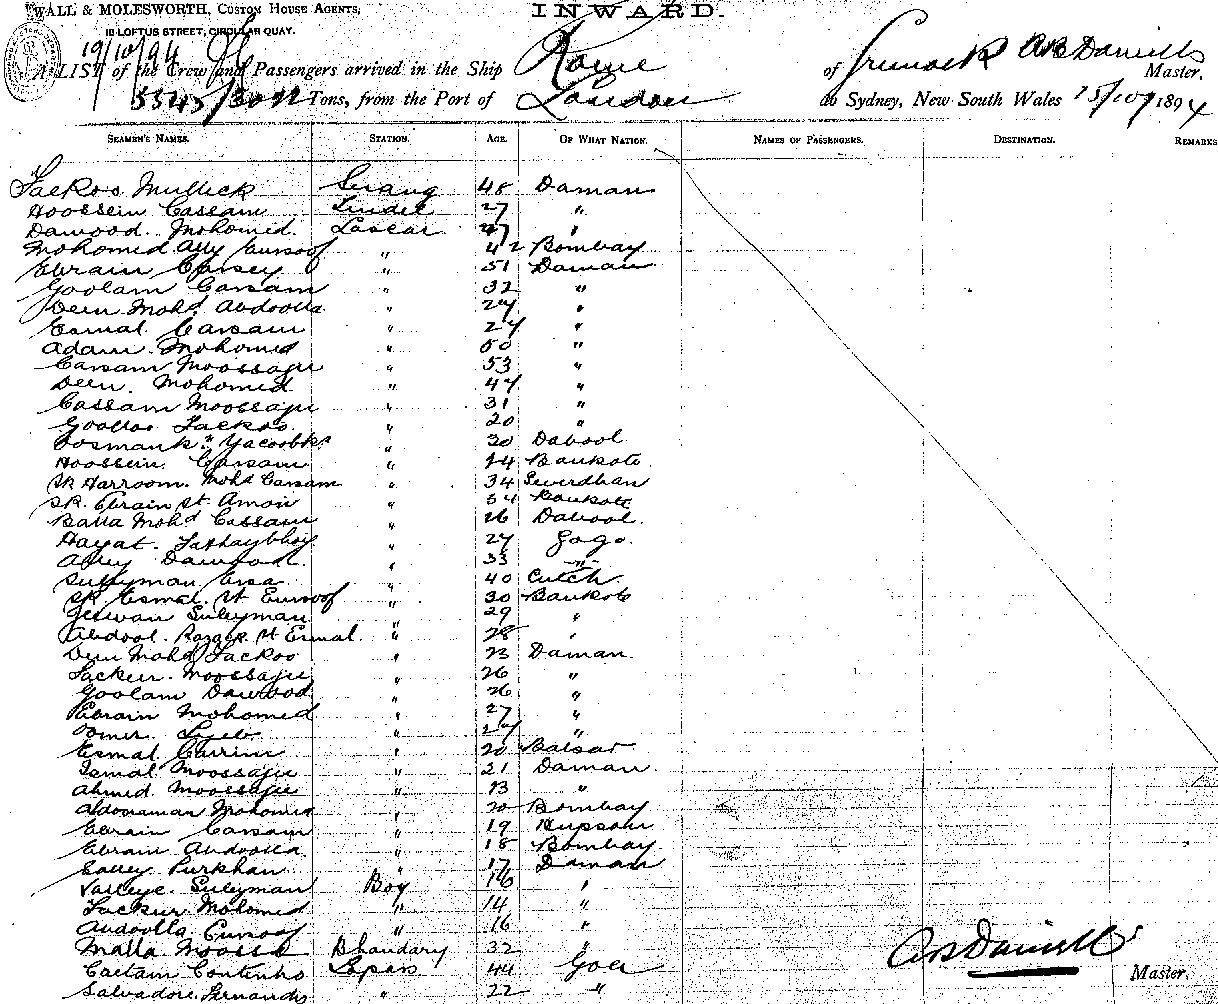 WALL & MOLESWORTH, CUSTOM HOUSE AGENTS,
INWARD.
10 LOFTUS STREET, CIRCULAR QUAY.
19/10/94
A LIST of the Crew and Passengers arrived in the Ship Rome of Greenock A B Daniell Master,
5545/3012 Tons, from the Port of London to Sydney, New South Wales 15/10/1894
SEAMEN'S NAMES. STATION. AGE. OF WHAT NATION. NAMES OF PASSENGERS. DESTINATION. REMARKS
Jackoo Mullick Serang 48 Daman
Hoossein Cassam Tindel 27 "
Dawood Mohomed Lascar 47 "
Mohomed Ally Eusoof " 42 Bombay
Ebrain " 51 Daman
Goolam Cassam " 32 "
Deen Mohd Abdoolla " 27 "
Esmal Cassam " 27 "
Adam Mohomed " 50 "
Cassam Moossajee " 53 "
Deen Mohomed " 47 "
Cassam Moossajee " 31 "
Jackoo " 20 "
Yacoobkn " 30 Dabool
Hoossein Cassam " 44 Bankote
SK Harroom Mohd Cassam " 34
SK Ebrain St Amon " 34 Bankote
Balla Mohd Cassam " 26 Dabool
Hayat " 27 Gogo
Ally Dawood " 33 "
Suleyman Essa " 40 Cutch
SK Esmal St Eusoof " 30 Bankote
Jeewan Suleyman " 29 "
Abdool Razack St Esmal " 28 "
Deen Mohd Jackoo " 23 Daman
Jackeer Moossajee " 26 "
Goolam Dawood " 26 "
Ebrain Mohomed " 27 "
Omer " 27 "
Esmal Carrim " 20 Balsar
Esmal Moossajee " 21 Daman
Ahmed Moossajee " 23 "
Mohomed " 20 Bombay
Ebrain Cassam " 19
Ebrain Abdoolla " 18 Bombay
Purkhan " 17 Daman
Suleyman Boy 16 "
Jackeer Mohomed " 14 "
Abdoolla Eusoof " 16 "
Malla Moossa Bhandary 32 "
Caetam Coutinho Topas 44 Goa
Salvadore Fernandes " 22 "
A B Daniell
Master.